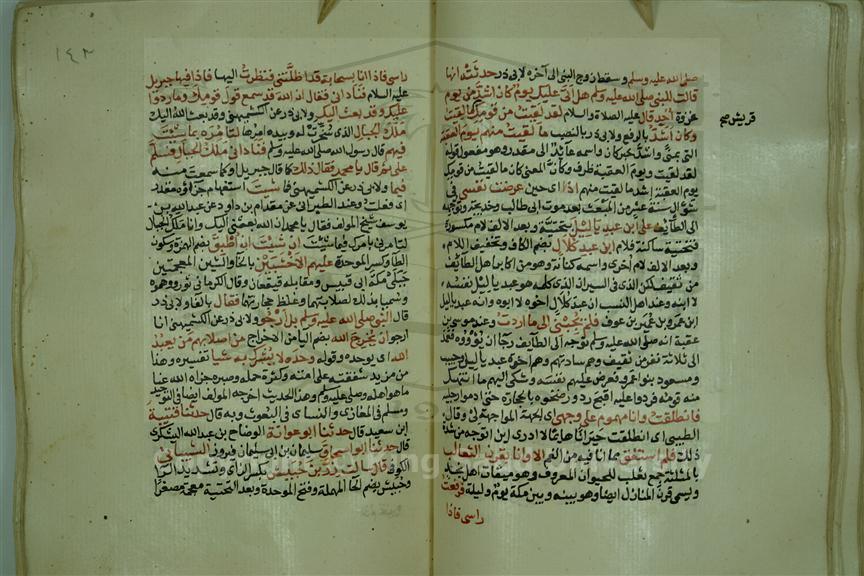 صلى الله عليه وسلم وسقط زوج النبي الى آخره لابي ذر حدثته انها
قالت للنبي صلى الله عليه وسلم هل اتى عليك يوم كان اشد من يوم
احد قال عليه الصلاة والسلام لقد لقيت من قومك ما لقيت
وكان اشد بالرفع ولابي ذر بالنصب ما لقيت منهم يوم العقبة
التي بمنى واشد خبر كان واسمه عائد الى مقدر وهو مفعول قوله
لقد لقيت ويوم العقبة ظرف وكأن المعنى كان ما لقيت من قومك
يوم العقبة اشد ما لقيت منهم اذ اي حين عرضت نفسي في
شوال سنة عشر من المبعث بعد موت ابي طالب وخديجة وتوجهه
الى الطائف على ابن عبد ياليل بتحتية وبعد الالف لام مكسورة
فتحتية ساكنة فلام ابن عبد كلال بضم الكاف وتخفيف اللام
وبعد الالف لام اخرى واسمه كنانة وهو من اكابر اهل الطائف
من ثقيف لكن الذي في السير ان الذي كلمه هو عبد ياليل نفسه
لا ابنه وعند اهل النسب ان عبد كلال اخوه لا ابوه وانه عبد ياليل
ابن عمرو بن عمير بن عوف فلم يجبني الى ما اردت وعند موسى بن
عقبة انه صلى الله عليه وسلم توجه الى الطايف رجا ان يؤووه فعمد
الى ثلاثة نفر من ثقيف وهم سادتهم وهم اخوة عبد ياليل وحبيب
ومسعود بنوا عمرو فعرض عليهم نفسه وشكى اليهم ما انتهك
منه قومه فردوا عليه اقبح رد ورضخوه بالحجارة حتى ادموا رجليه
فانطلقت وانا مهموم على وجهي اي الجهة المواجهة لي وقال
الطيبي اي انطلقت حيرانا هائما لا ادري اين اتوجه من شدة
ذلك فلم استفق مما انا فيه من الغم الا وانا بقرن الثعالب
بالمثلثة جمع ثعلب للحيوان المعروف وهو ميقات اهل نجد
ويسمى قرن المنازل ايضا وهو بينه وبين مكة يوم وليلة فرفعت
راسي فاذا
قريش صح
١٤٢
راسي فاذا انا بسحابة قد اظلتني فنظرت اليها فاذا فيها جبريل
عليه السلام فناداني فقال ان الله قد سمع قول قومك وما ردوا
عليك وقد بعث اليك ولابي ذر عن الكشميهني وقد بعث الله اليك
ملك الجبال الذي سخرت له وبيده امرها لتامره بما شئت
فيهم قال رسول الله صلى الله عليه وسلم فناداني ملك الجبال فسلم
علي ثم قال يا محمد فقال ذلك كما قال جبريل او كما سمعت منه
فيما ولابي ذر عن الكشميهني فما شئت استفهام جزاؤه مقدر
اي فعلت وعند الطبراني عن مقدام بن داود عن عبد الله بن
يوسف شيخ المولف فقال يا محمد ان الله بعثني اليك وانا ملك الجبال
لتامرني بامرك فيما شئت ان شئت ان اطبق بضم الهمزة وسكون
الطاء وكسر الموحدة عليهم الاخشبين بالخاء والشين المعجمتين
جبلي مكة ابي قبيس ومقابله قعيقعان وقال الكرماني ثور ووهموه
وسميا بذلك لصلابتهما وغلظ حجارتهما فقال بالفاء ولابي ذر
قال النبي صلى الله عليه وسلم بل ارجو ولابي ذر عن الكشميهني انا
ارجو ان يخرج الله بضم اليا من الاخراج من اصلابهم من يعبد
الله اي يوحده وقوله وحده لا يشرك به شيا تفسيره وهذا
من مزيد شفقته على امته وكثرة حلمه وصبره جزاه الله عنا
ما هو اهله وصلى عليه وسلم وهذا الحديث اخرجه المولف ايضا في التوحيد
ومسلم في المغازي والنساى في البعوث وبه قال حدثنا قتيبة
ابن سعيد قال حدثنا ابو عوانة الوضاح بن عبد الله اليشكري
قال حدثنا ابو اسحاق سليمان بن ابي سليمان فيروز الشيباني
الكوفي قال سالت زر بن حبيش بكسر الزاى وتشديد الرا
وحبيش بضم الحا المهملة وفتح الموحدة وبعد التحتية معجمة مصغرا